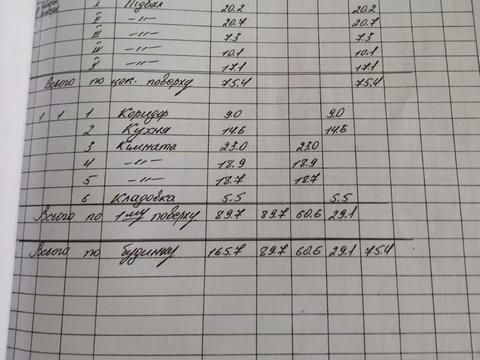 I Підвал 20.2 20.2
II -〃- 20.7 20.7
III -〃- 7.3 7.3
IV -〃- 10.1 10.1
V -〃- 17.1 17.1
Всього по цок. поверху 75.4 75.4
1 1 1 Коридор 9.0 9.0
2 Кухня 14.6 14.6
3 Кімната 23.0 23.0
4 -〃- 18.9 18.9
5 -〃- 18.7 18.7
6 Кладовка 5.5 5.5
Всього по 1му поверху 89.7 89.7 60.6 29.1
Всього по будинку 165.7 89.7 60.6 29.1 75.4